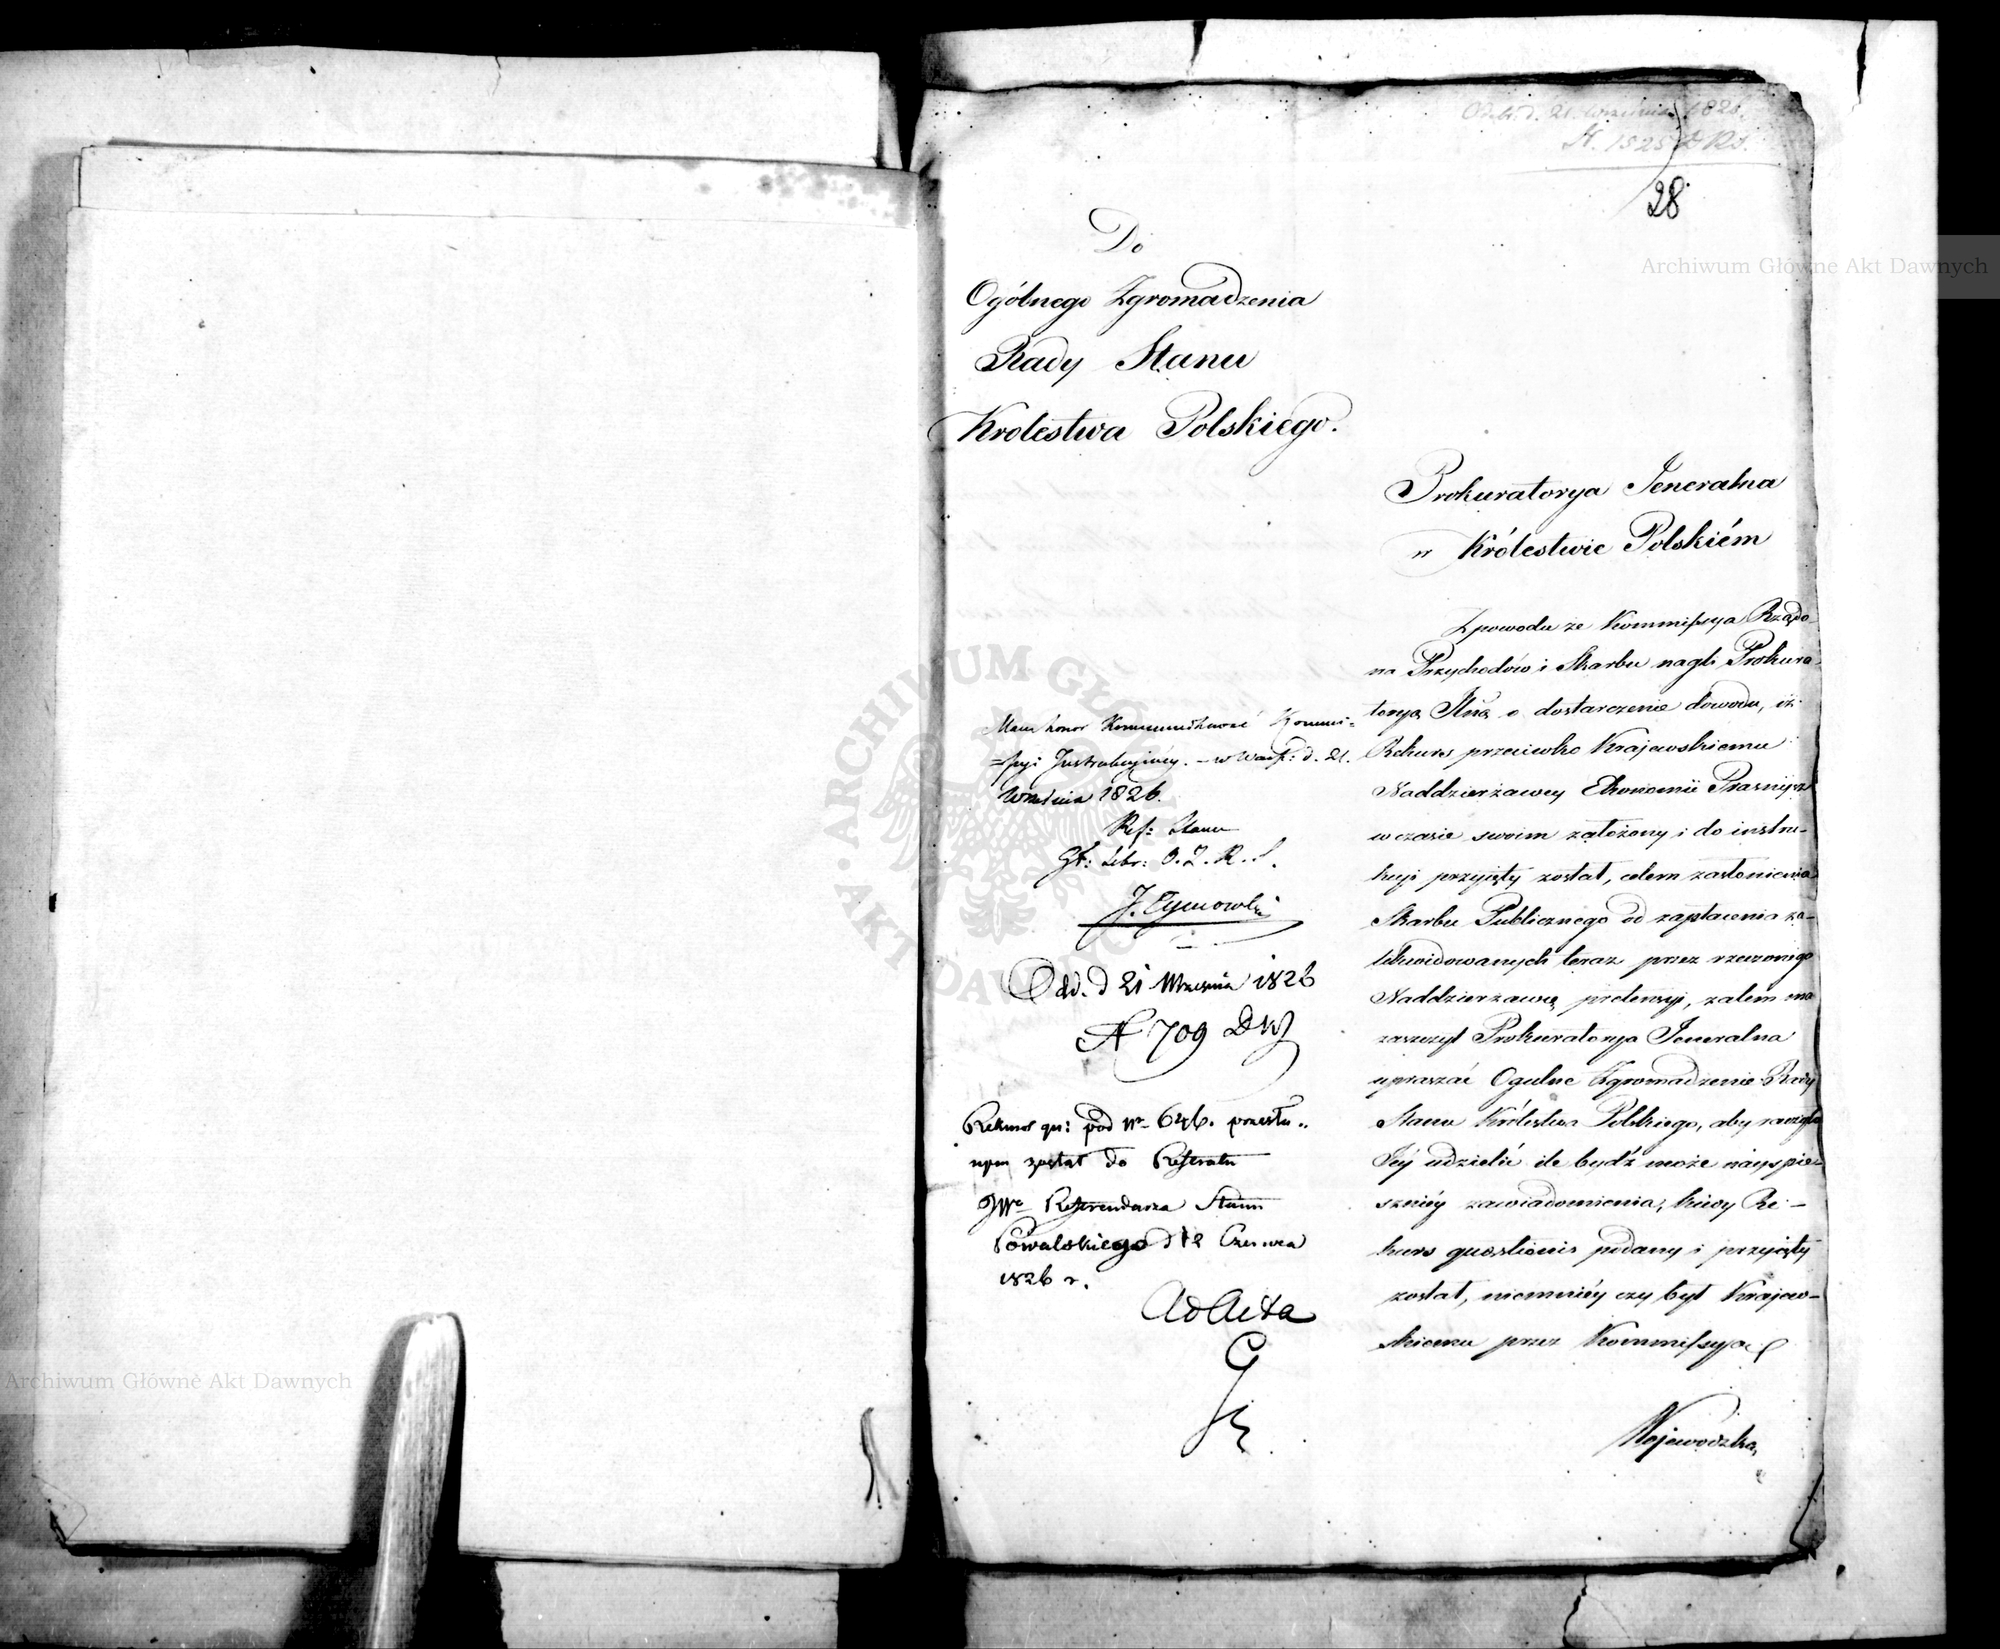 Odeb. d. 21. Września 1826.
N. 1525
28
Archiwum Główne Akt Dawnych
Do
Ogólnego Zgromadzenia
Rady Stanu
Krolestwa Polskiego.
Prokuratorya Jeneralna
w Królestwie Polskiém
Z powodu że Kommissya Rządo-
wa Przychodów i Skarbu nagli Prokura-
toryą o dostarczenie dowodu, iż
Rekurs przeciwko Krajewskiemu
Naddzierżawcy Ekonomii Prasnysz
w czasie swoim założony i do instru-
kcyi przyięty został, celem zasłonienia
Skarbu Publicznego od zapłacenia za-
likwidowanych teraz przez rzeczonego
Naddzierżawcę pretensyi, zatem ma
zaszczyt Prokuratorya Jeneralna
upraszać Ogulne Zgromadzenie Rady
Stanu Królestwa Polskiego, aby raczyło
Jéy udzielić ile bydź może náyspie-
szniéy zawiadomienia, kiedy Re-
kurs quaestionis podany i przyięty
został, niemniéy czy był Krajew-
skiemu przez Kommissyą
Wojewodzką,
Mam honor Kommunikować Kommis-
syi Instrukcyjnéy. - w Warsz: d. 21.
Września 1826.
Ref: Stanu
Gł: Sekr: O. Z. R. S.
J. Tymowski
Odd. d 21 Września 1826
N 709 DKJ
Rekurs qu: pod Nr 646. przesła-
nym został do Referatu
JWo Referendarza Stanu
Kowalskiego d 12 Czerwca
1826 r.
Ad Acta
ARCHIWUM GŁÓWNE AKT DAWNYCH
Archiwum Główne Akt Dawnych